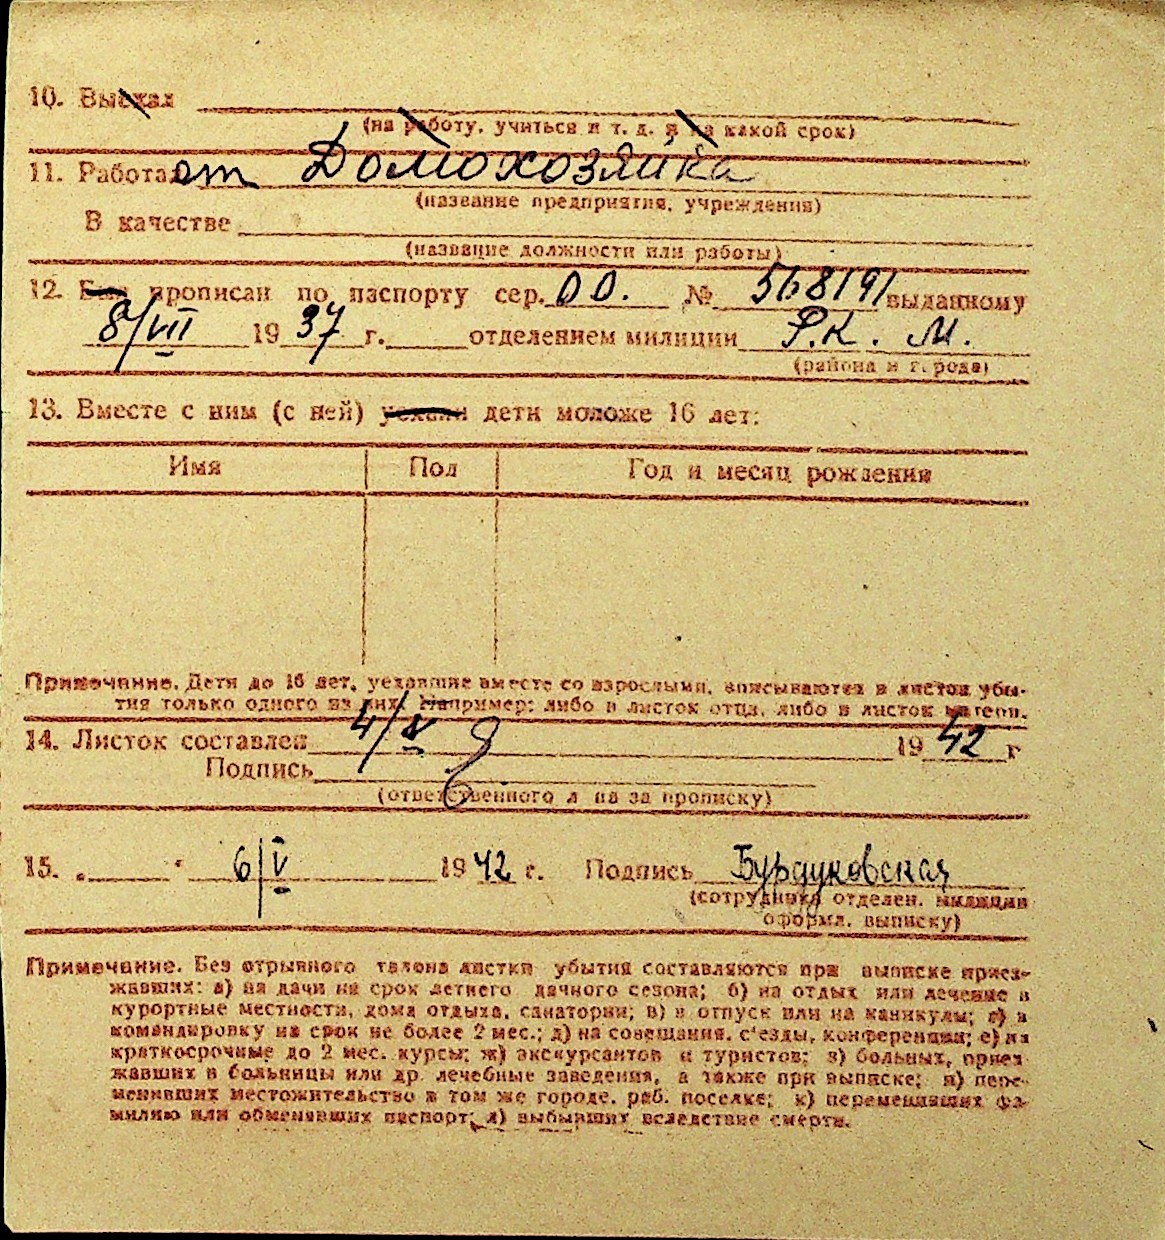 10. Выехал
(на работу, учиться и т. д. и на какой срок)
11. Работает Домохозяйка
(название предприятия, учреждения)
В качестве
(название должности или работы)
12. Был прописан по паспорту сер. О О. № 568191 выданному
8/VII 19 37 г. отделением милиции Р.К. М.
(района и города)
13. Вместе с ним (с ней) уехали дети моложе 16 лет:
Имя Пол Год и месяц рождения
Примечание. Дети до 16 лет, уехавшие вместе со взрослыми, вписываются в листок убы-
тия только одного из них. Например: либо в листок отца, либо в листок матери.
14. Листок составлен 4/V 19 42 г
Подпись
(ответственного л на за прописку)
15. „ “ 6/V 19 42 г. Подпись
(сотрудника отделен. милиции
оформл. выписку)
Примечание. Без отрывного талона листки убытия составляются при выписке приез-
жавших: а) на дачи на срок летнего дачного сезона; б) на отдых или лечение в
курортные местности, дома отдыха, санатории; в) в отпуск или на каникулы; г) в
командировку на срок не более 2 мес.; д) на совещания, с'езды, конференции; е) на
краткосрочные до 2 мес. курсы; ж) экскурсантов и туристов; з) больных, приез
жавших в больницы или др. лечебные заведения, а также при выписке; и) пере-
менивших местожительство в том же городе, раб. поселке; к) переменивших фа-
милию или обменивших паспорт; л) выбывших вследствие смерти.